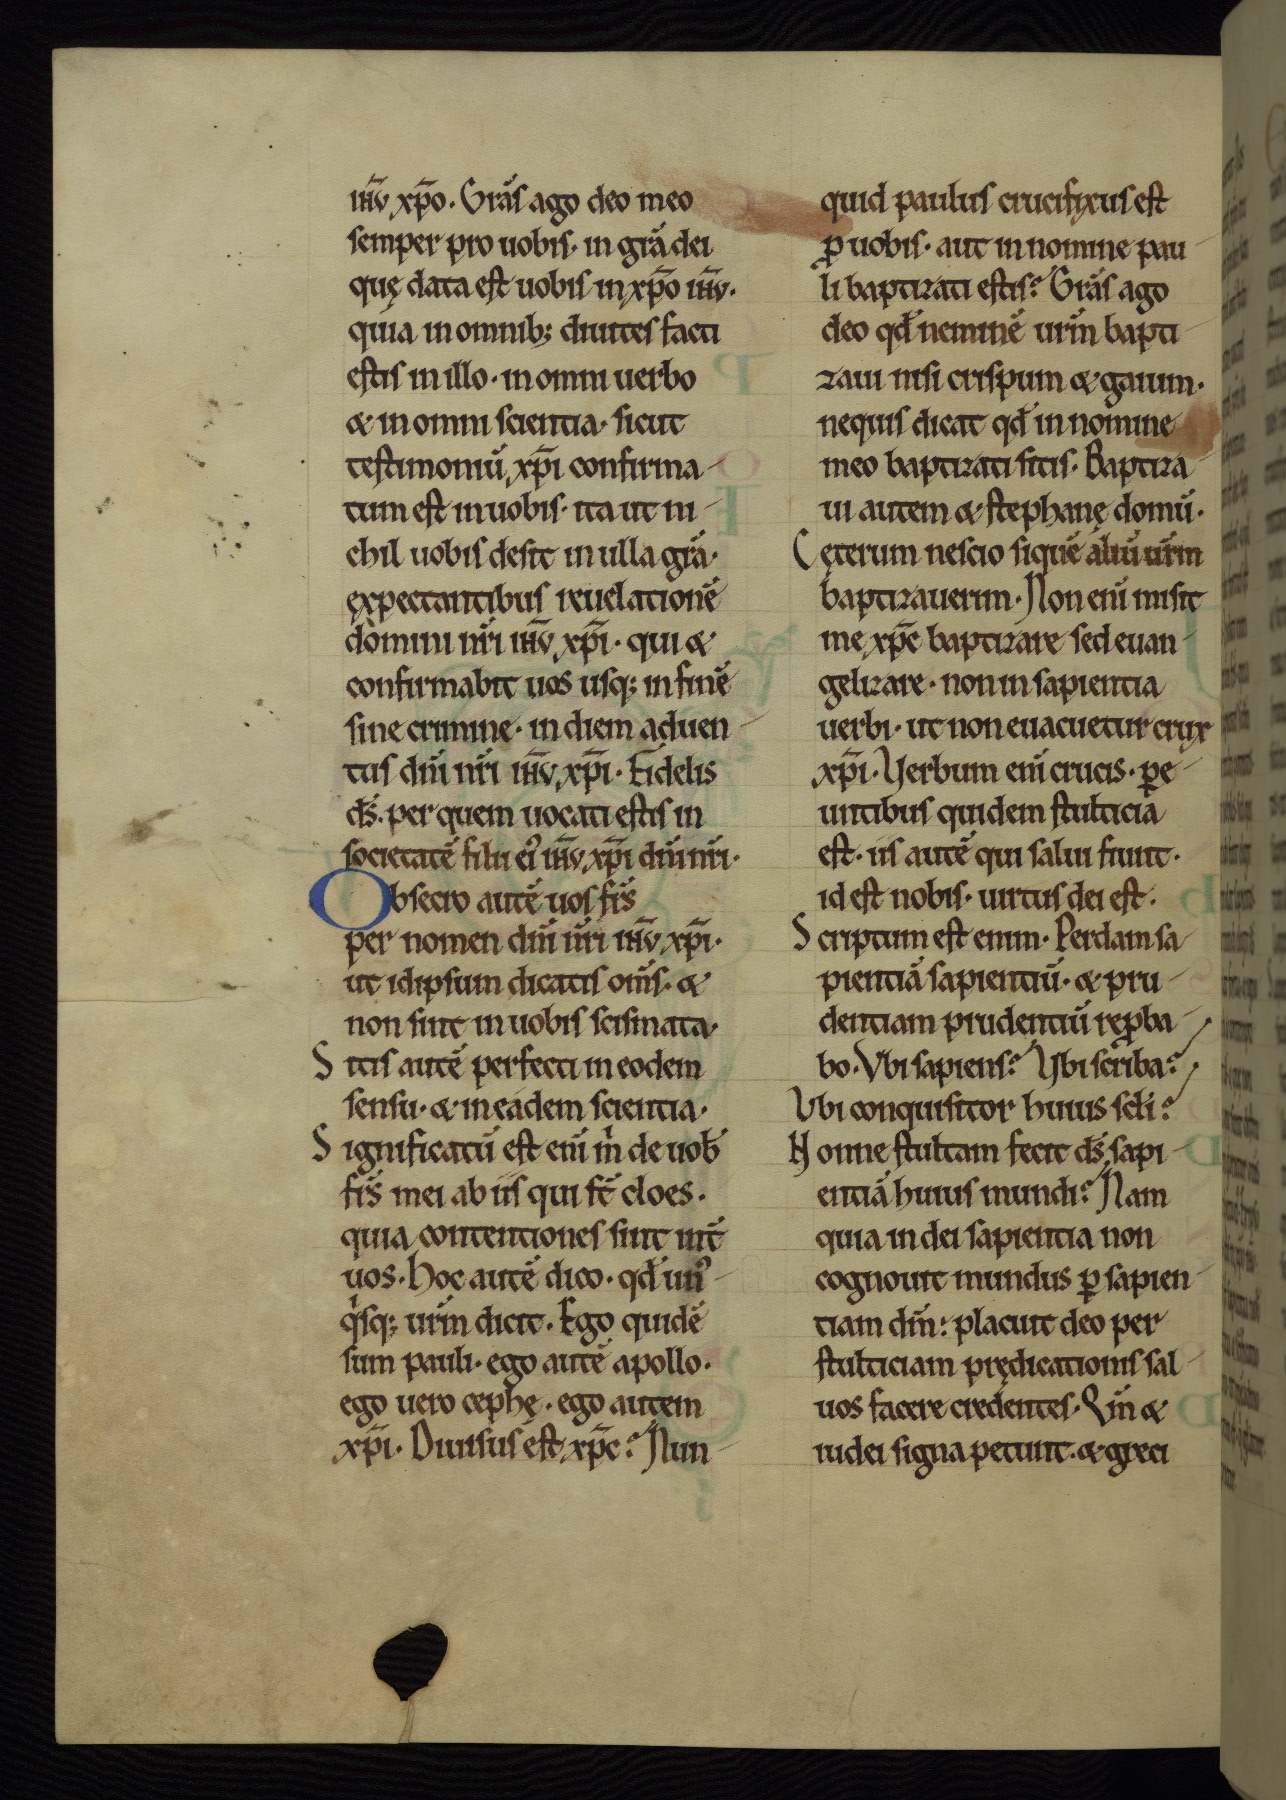 ihū xp̄o. Grā́s ago deo meo
semper pro uobis. in grā́ dei
quę data est uobis in xp̄o ihū.
quia in omnib; diuites facti
estis in illo. in omni uerbo
& in omni scientia. sicut
testimoniū xp̄i confirma-
tum est in uobis. ita ut ni-
chil uobis desit in ulla grā́.
expectantibus reuelationē
domini nrī ihū xp̄i. qui &
confirmabit uos usq; in finē
sine crimine. in diem aduen-
tus dn̄i nrī ihū xp̄i. Fidelis
ds̄. per quem uocati estis in
societatē filii ei᾽ ihū xp̄i dn̄i nrī.
Obsecro autē uos frs̄
per nomen dn̄i nrī ihū xp̄i.
ut idipsum dicatis om̄s. &
non sint in uobis scismata.
Sitis autē perfecti in eodem
sensu. & in eadem scientia.
Significatū est enī m̍ de uob̄
frs̄ mei ab iis qui st̄ cloes.
quia contentiones sunt int̄
uos. Hoc autē dico. qd̄ un᾽-
q̍sq; urm̄ dicit. Ego quidē
sum pauli. ego autē apollo.
ego uero cephę. ego autem
xp̄i. Diuisus est xp̄c? Nun-
quid paulus crucifixus est
ꝓ uobis. aut in nomine pau-
li baptizati estis? Grā́s ago
deo qd̄ neminē urm̄ bapti-
zaui nisi crispum & gaium.
nequis dicat qd̄ in nomine
meo baptizati sitis. Baptiza-
ui autem & stephanę domū.
Ceterum nescio siquē aliū urm̄
baptizauerim. Non enī misit
me xp̄c baptizare sed euan-
gelizare. non in sapientia
uerbi. ut non euacuetur crux
xp̄i. Verbum enī crucis. ꝑe-
untibus quidem stulticia
est. iis autē qui salui fiunt.
id est nobis. uirtus dei est.
Scriptum est enim. Perdam sa-
pientiā sapientiū. & pru-
dentiam prudentiū reꝓba-
bo. Vbi sapiens? Vbi scriba?
Vbi conquisitor huius scl̄i?
Nonne stultam fecit ds̄ sapi-
entiā huius mundi? Nam
quia in dei sapientia non
cognouit mundus ꝑ sapien-
tiam dm̄: placuit deo per
stulticiam prędicationis sal-
uos facere credentes. Qm̄ &
iudei signa petunt. & greci